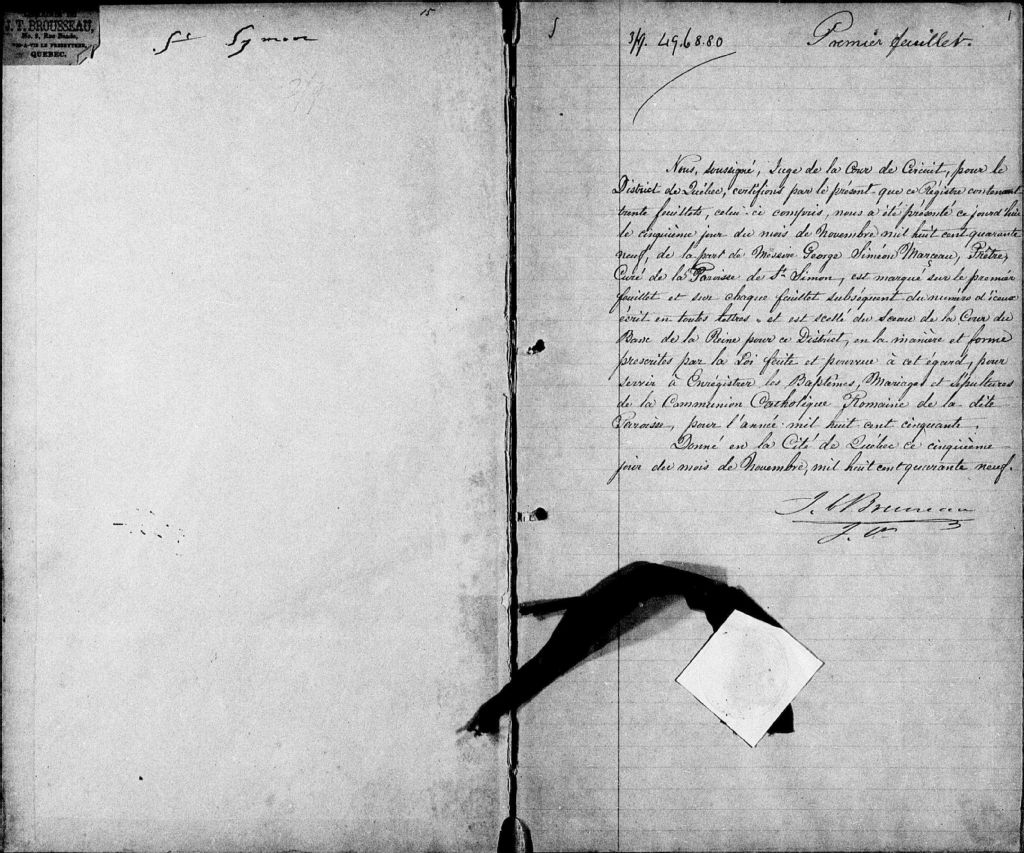 J. T. BROUSSEAU,
No. 9, Rue Buade,
VIS-A-VIS LE PRESBYTERE,
QUEBEC.
15
St Symon
S
1
49.68.80
Premier feuillet.
Nous, soussigné, Juge de la Cour de Circuit, pour le
District de Québec, certifions par le présent que ce Registre contenant
trente feuillets, celui-ci compris, nous a été présenté ce jourd'hui
le cinquième jour du mois de Novembre mil huit cent quarante
neuf, de la part de Messire George Siméon Marceau, Prêtre,
Curé de la Paroisse de St Simon, est marqué sur le premier
feuillet et sur chaque feuillet subséquent du numéro d'iceux
écrit en toutes lettres, et est scellé du Sceau de la Cour du
Banc de la Reine pour ce District, en la manière et forme
prescrites par la Loi faite et pourvue à cet égard, pour
servir à Enrégistrer les Baptêmes, Mariages et Sépultures
de la Communion Catholique Romaine de la dite
Paroisse, pour l'année mil huit cent cinquante.
Donné en la Cité de Québec ce cinquième
jour du mois de Novembre, mil huit cent quarante neuf.
J. C Bruneau